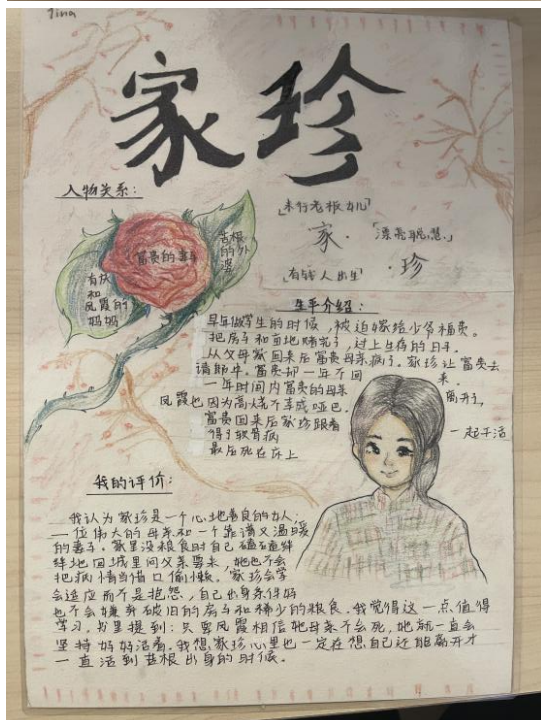 Tina
家珍
人物关系：
富贵的妻子
有庆
和
凤霞的
妈妈
苦根
的外
婆
「米行老板女儿」
家·
「漂亮聪慧」
·珍
「有钱人出生」
生平介绍：
早年做学生的时候，被迫嫁给少爷福贵。
把房子和亩地赌完了，过上生病的日子。
从父母家回来后富贵母亲病了。家珍让富贵去
请郎中。富贵却一年不回来.
一年时间内富贵的母亲离开了，
凤霞也因为高烧不幸成哑巴.
富贵回来后家珍跟着一起干活
得了软骨病
最后死在床上
我的评价：
我认为家珍是一个心地善良的女人；
一位伟大的母亲和一个靠谱又温暖
的妻子。家里没粮食时自己磕磕绊
绊地回城里问父亲要来，她也不会
把病情当借口偷懒。家珍会学
会适应而不是抱怨，自己出身条件好
也不会嫌弃破旧的房子和稀少的粮食。我觉得这一点值得
学习。书里提到：只要凤霞相信她母亲不会死，她就一直会
坚持好好活着。我想家珍心里也一定在想自己还能离开才
一直活到苦根出身的时候。